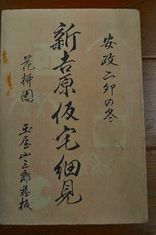 安政二卯の冬
新吉原仮宅細見
花栞園
玉屋山三郎蔵板